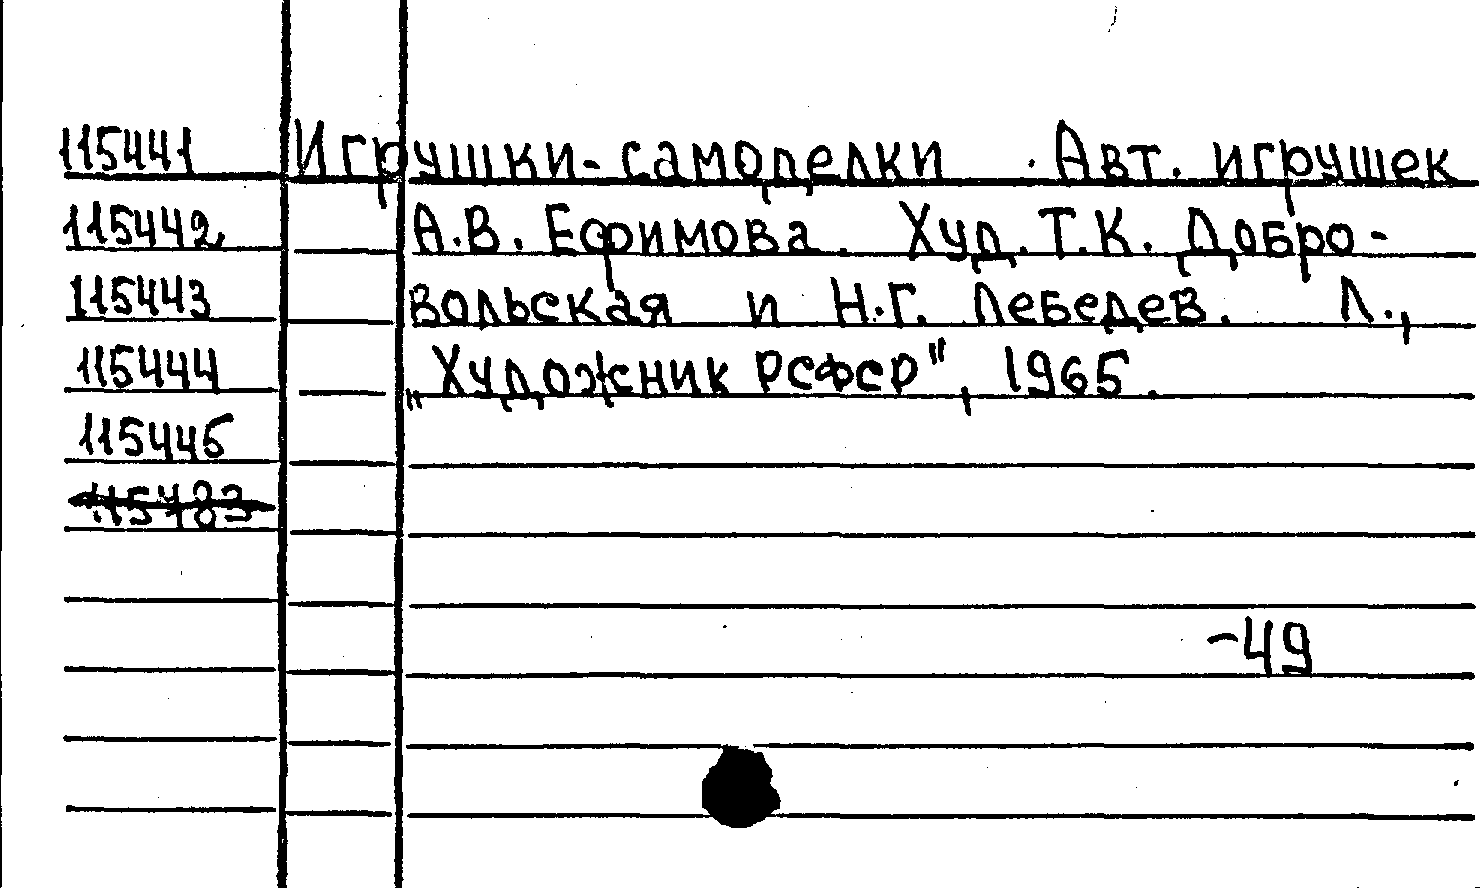 115441 Игрушки-самоделки . Авт. игрушек
115442 А.В. Ефимова. Худ. Т.К. Добро-
115443 вольская и Н.Г. Лебедев. Л.,
115444 „Художник РСФСР", 1965.
115445
115483
-49